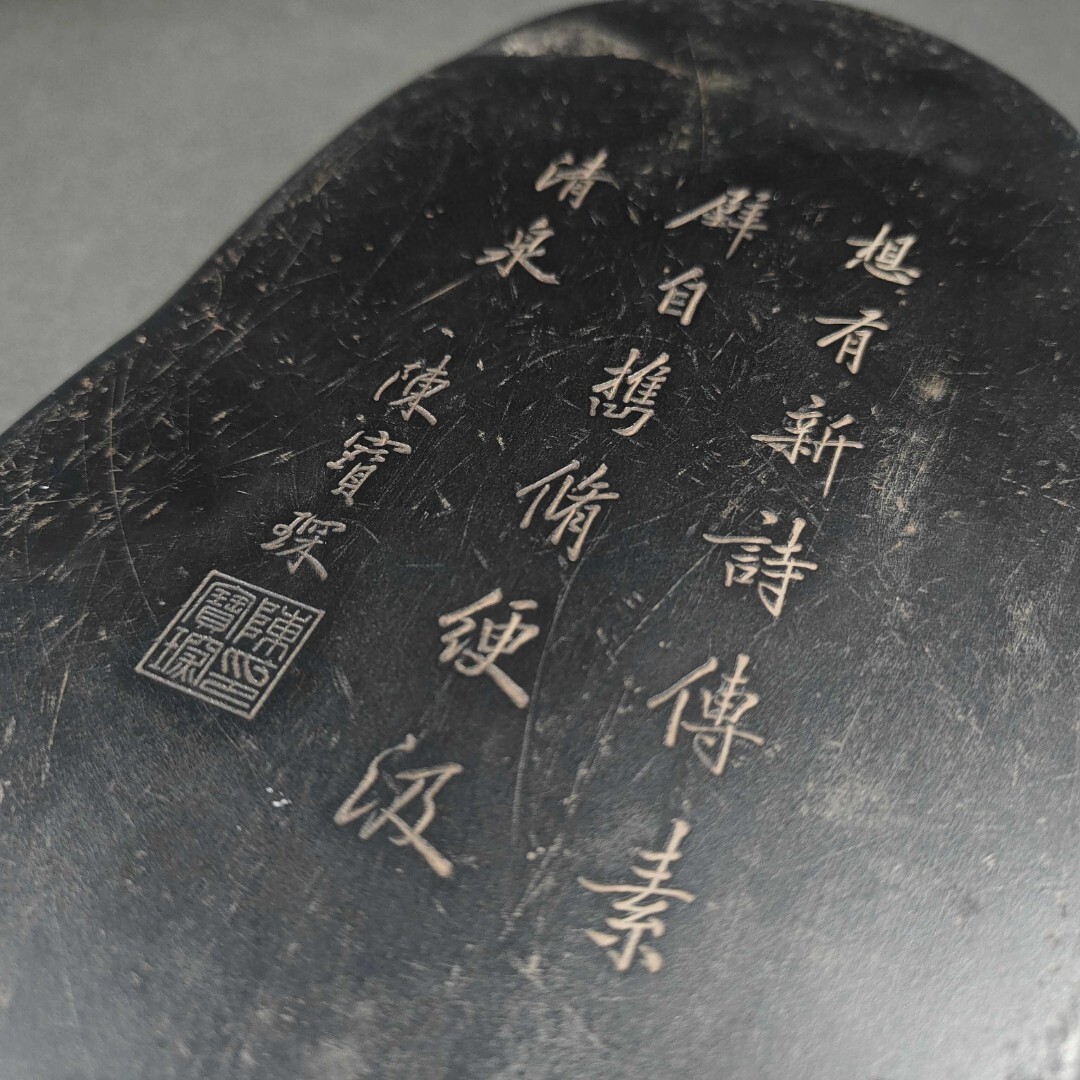 想有新詩傳素
壁自携脩綆汲
清泉
陳寶琛
陳寶琛印